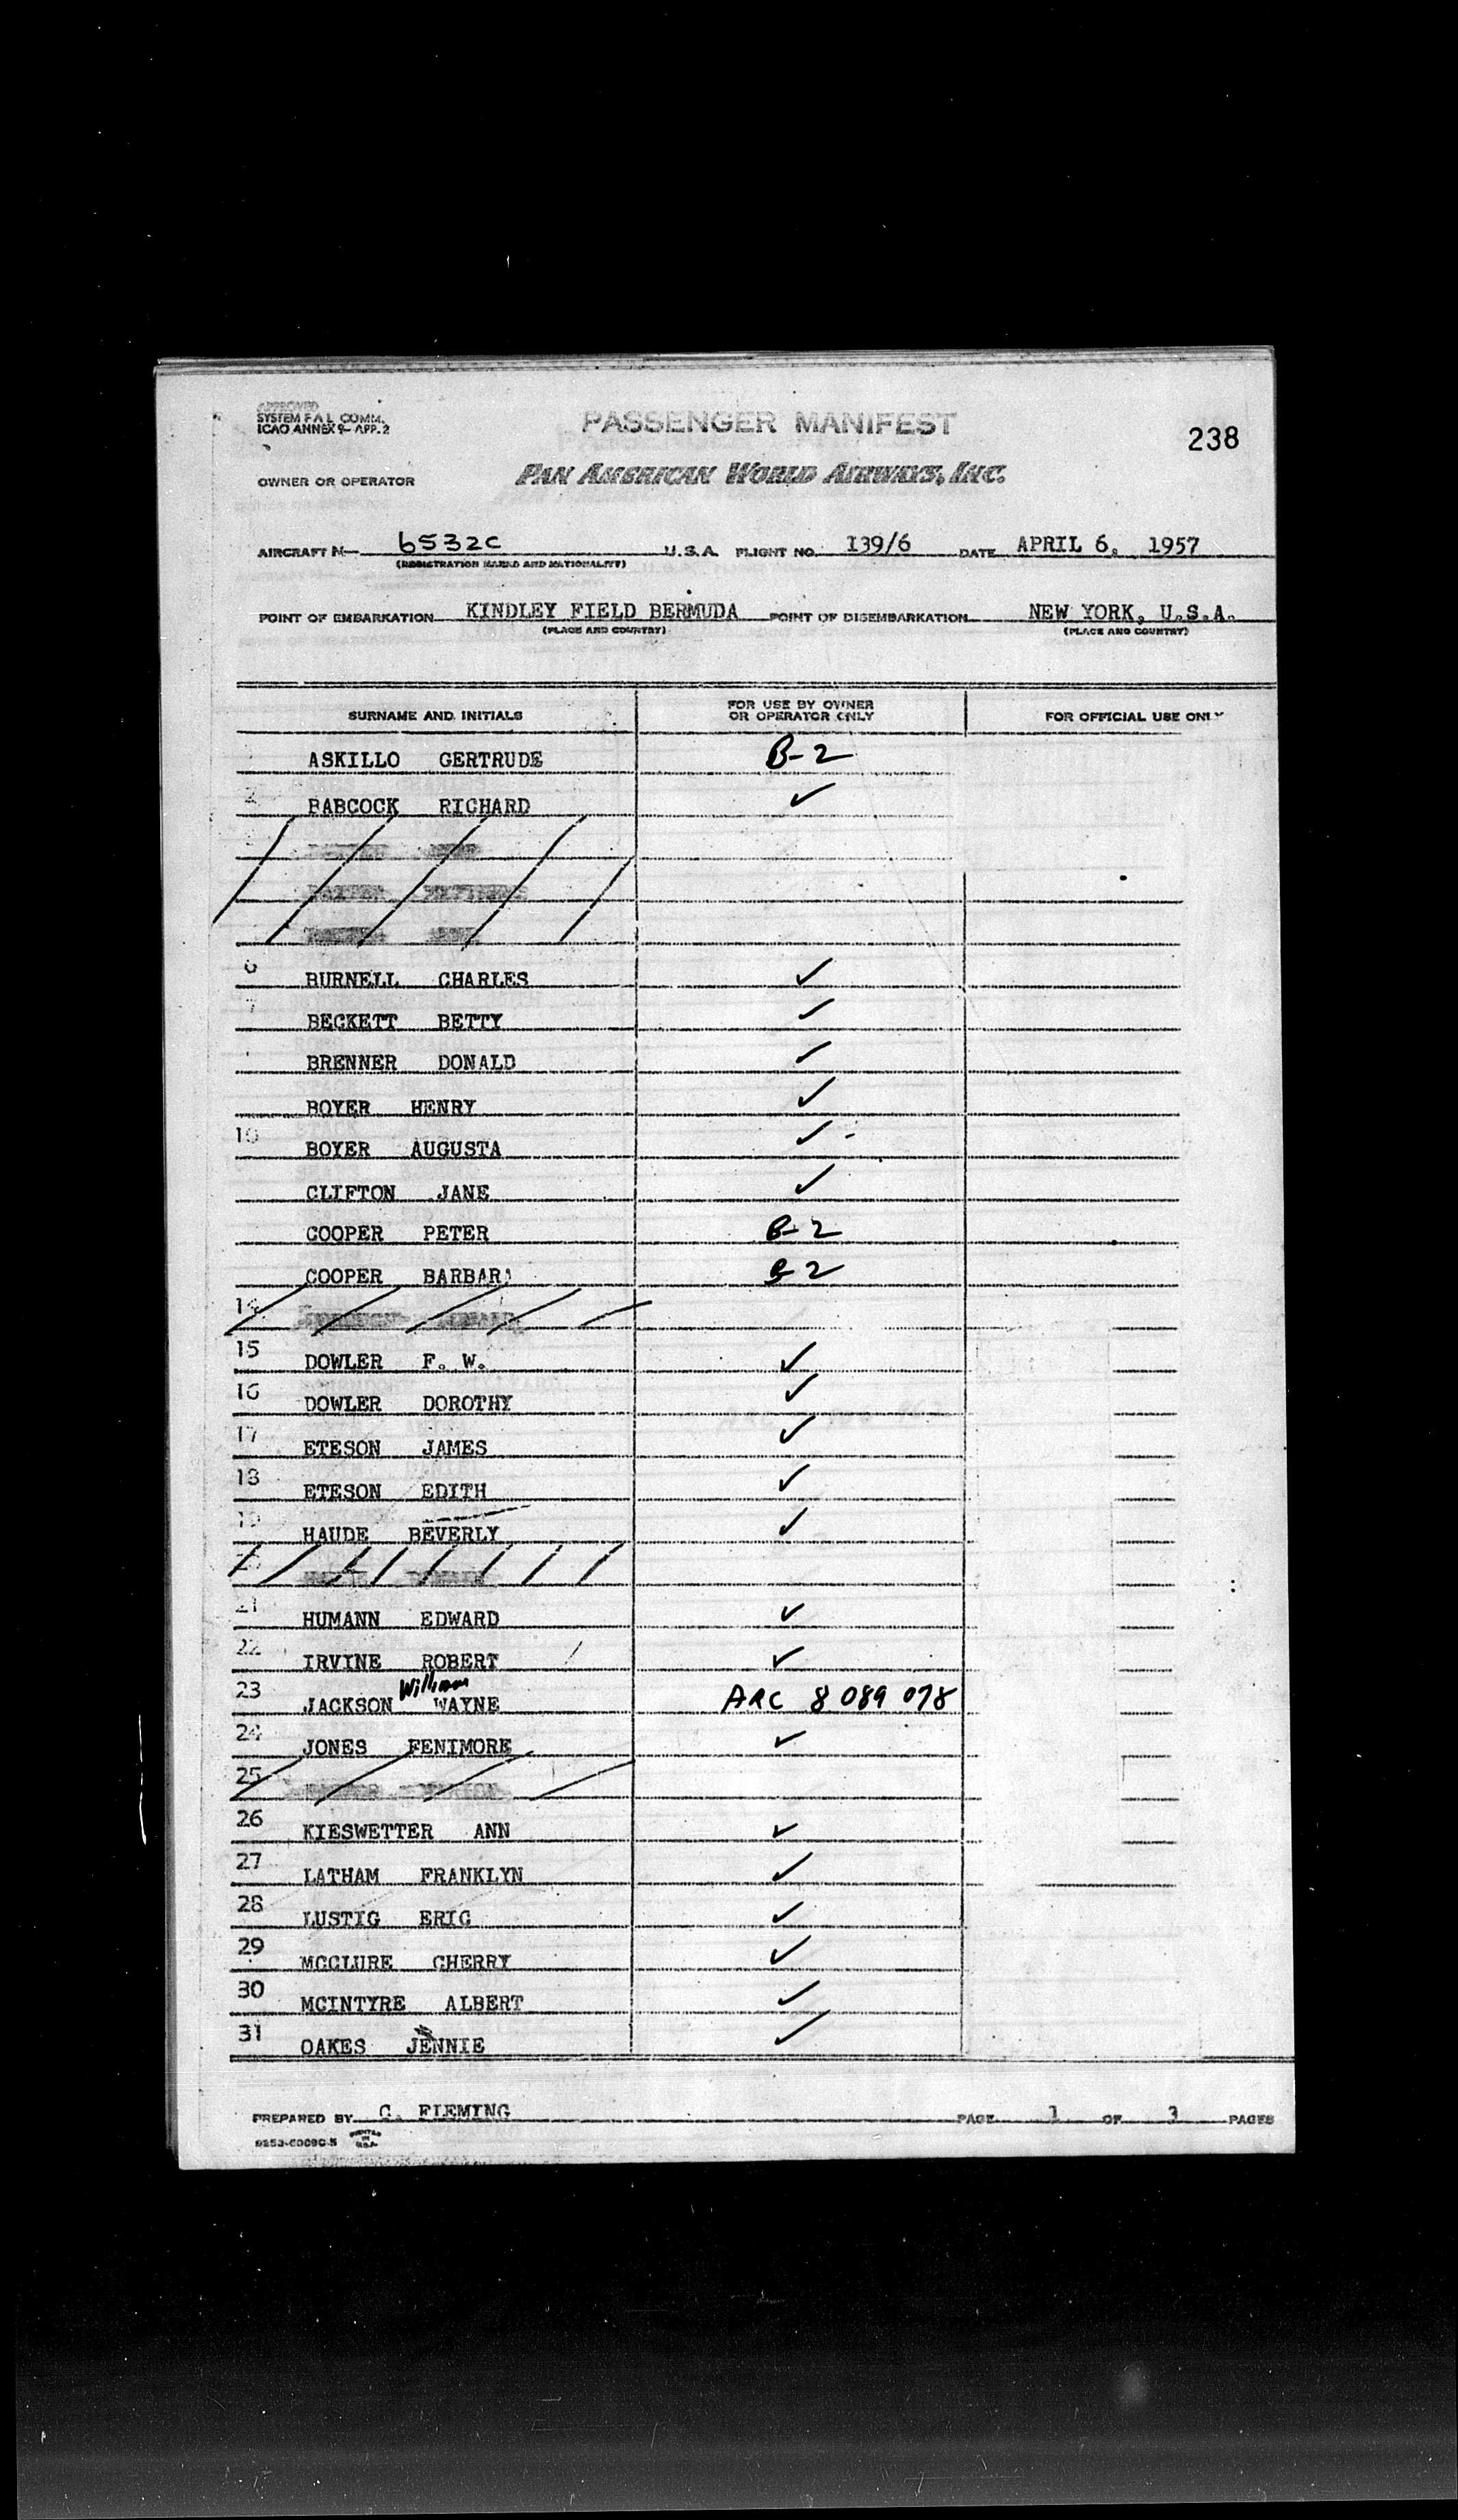 APPROVED
SYSTEM F A L COMM.
ICAO ANNEX 9- APP. 2
PASSENGER MANIFEST
238
OWNER OR OPERATOR PAN AMERICAN WORLD AIRWAYS, INC.
AIRCRAFT N- 6532C U.S.A. FLIGHT NO. 139/6 DATE APRIL 6, 1957
(REGISTRATION MARKS AND NATIONALITY)
POINT OF EMBARKATION KINDLEY FIELD BERMUDA POINT OF DISEMBARKATION NEW YORK, U.S.A.
(PLACE AND COUNTRY) (PLACE AND COUNTRY)
SURNAME AND INITIALS FOR USE BY OWNER OR OPERATOR ONLY FOR OFFICIAL USE ONLY
ASKILLO GERTRUDE B-2
2 BABCOCK RICHARD ✓
6 BURNELL CHARLES ✓
7 BECKETT BETTY ✓
BRENNER DONALD ✓
BOYER HENRY ✓
10 BOYER AUGUSTA ✓
CLIFTON JANE ✓
COOPER PETER B-2
COOPER BARBARA B-2
14
15 DOWLER F. W. ✓
16 DOWLER DOROTHY ✓
17 ETESON JAMES ✓
18 ETESON EDITH ✓
19 HAUDE BEVERLY ✓
20
21 HUMANN EDWARD ✓
22 IRVINE ROBERT ✓
23 JACKSON William WAYNE ARC 8 089 078
24 JONES FENIMORE ✓
25
26 KIESWETTER ANN ✓
27 LATHAM FRANKLYN ✓
28 LUSTIG ERIC ✓
29 MCCLURE CHERRY ✓
30 MCINTYRE ALBERT ✓
31 OAKES JENNIE ✓
PREPARED BY C. FLEMING PAGE 1 OF 3 PAGES
PRINTED IN U.S.A.